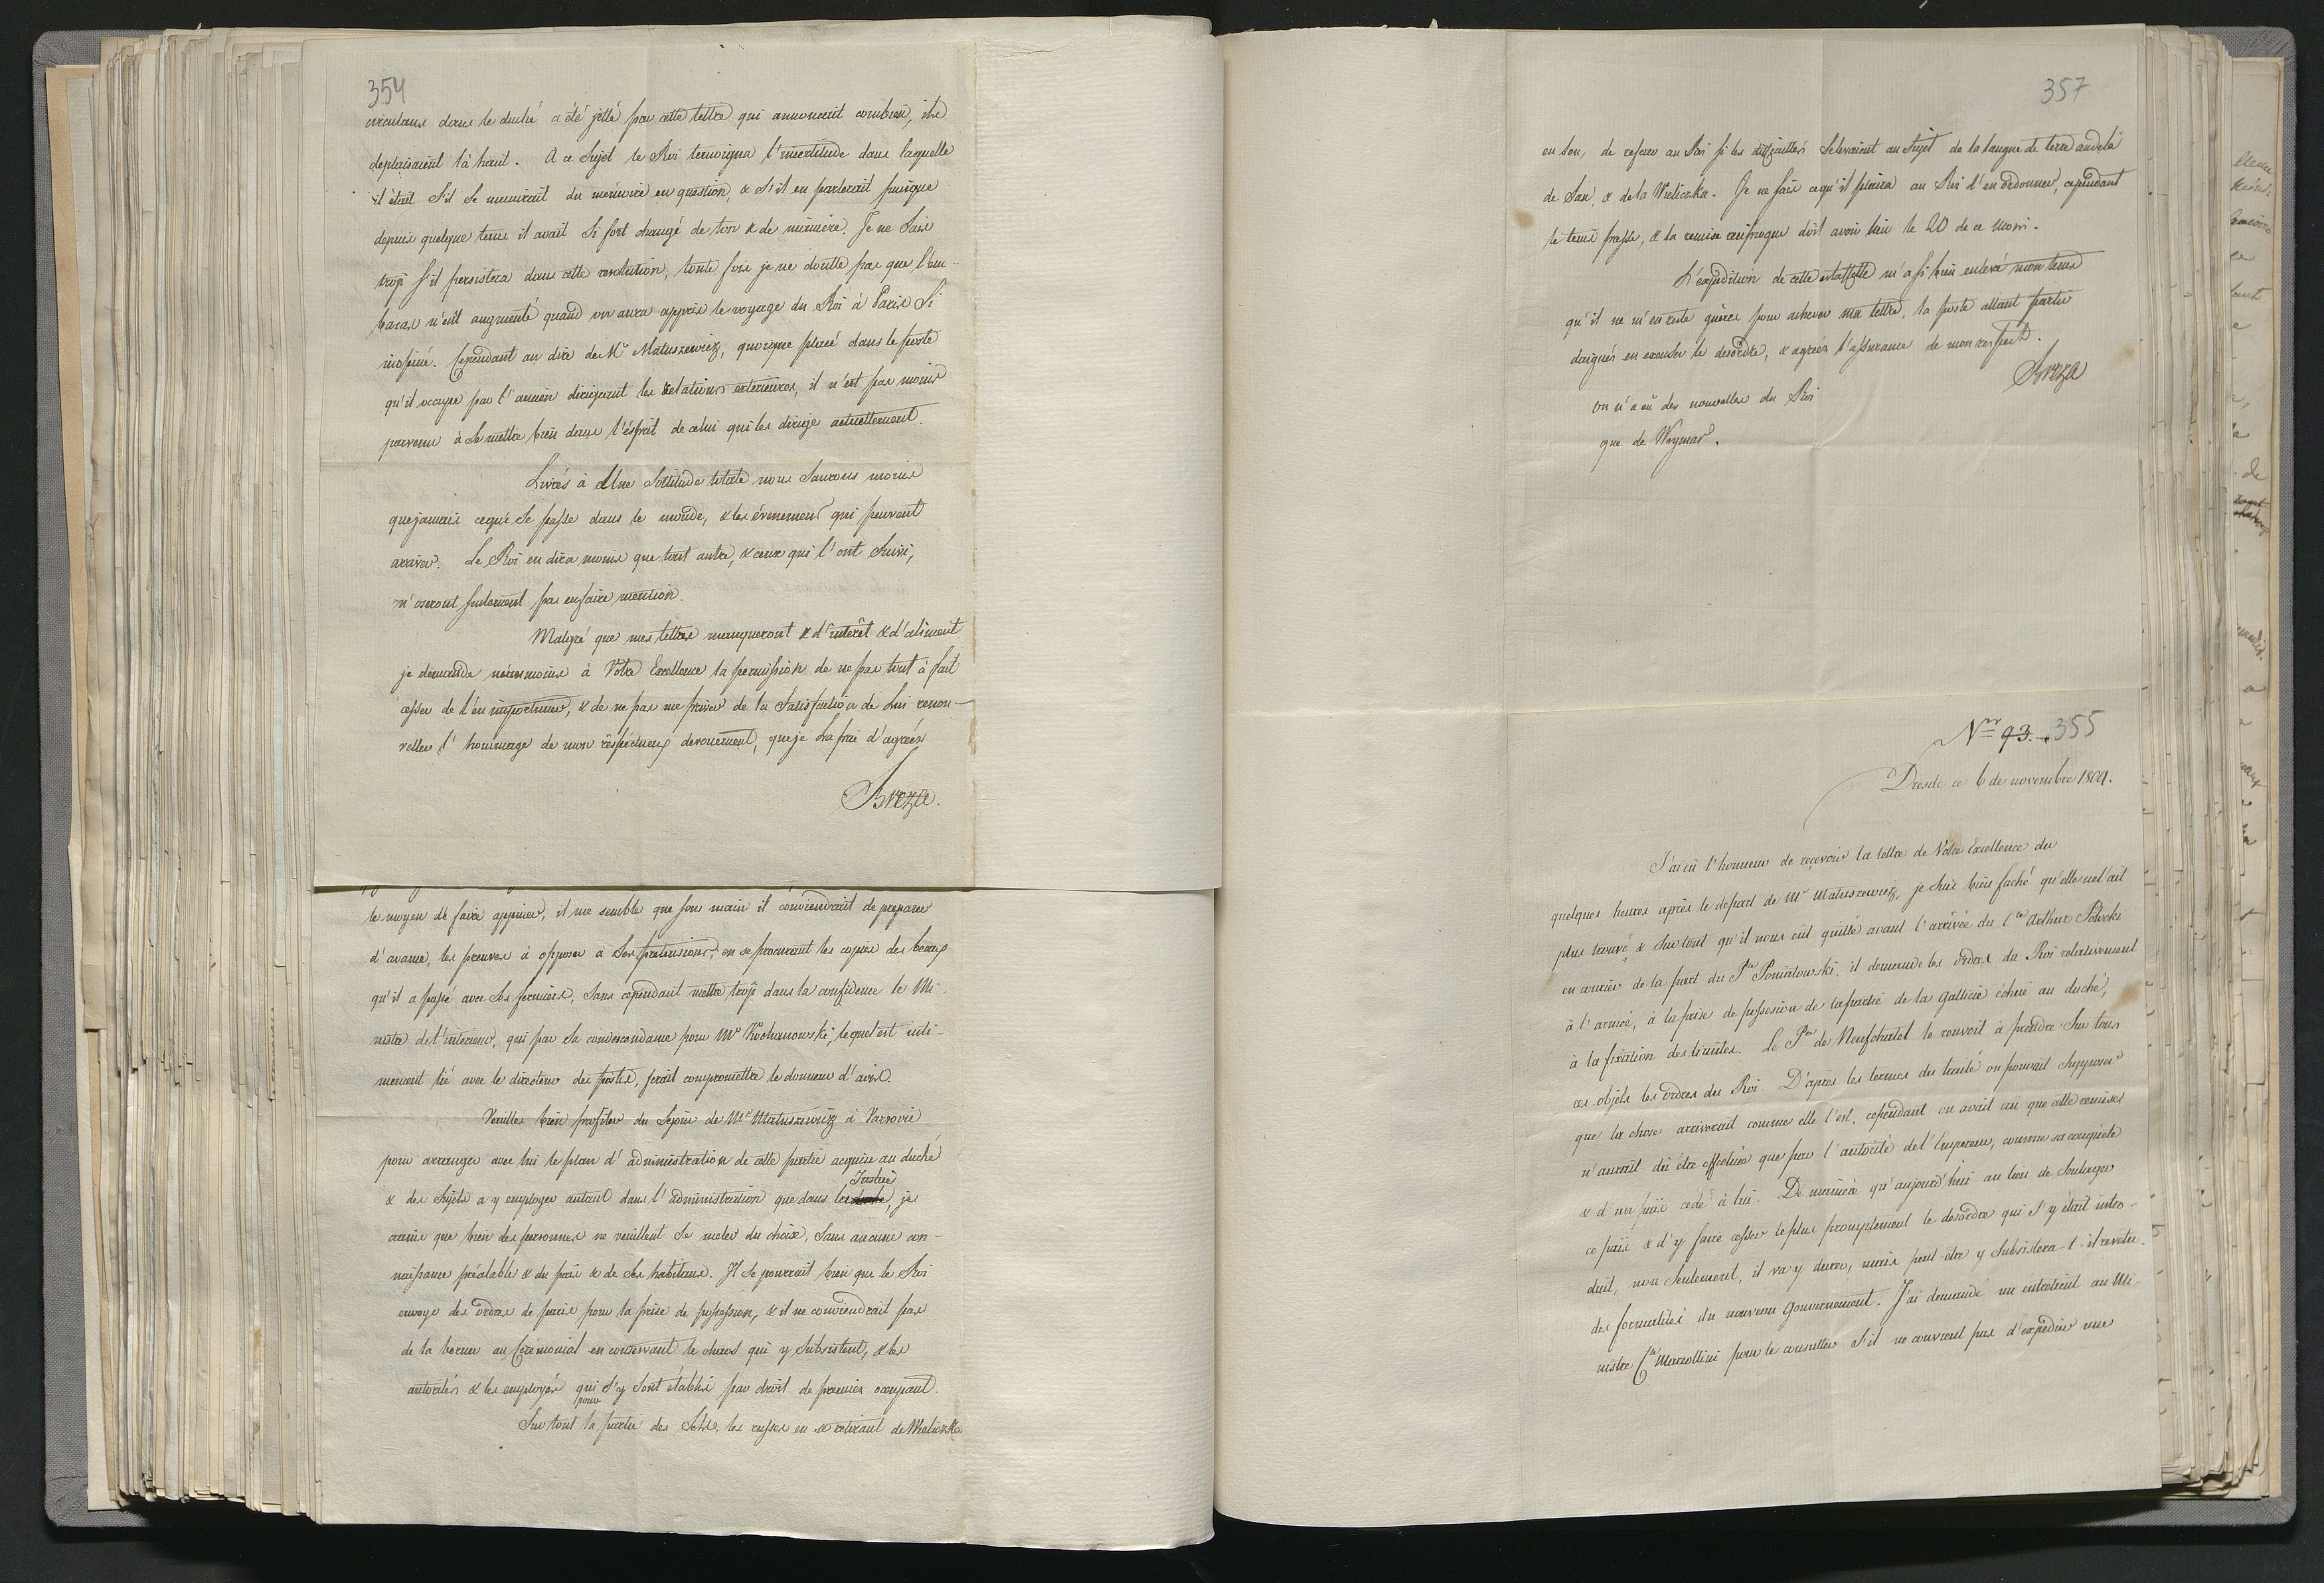 354
circulans dans le duché a été jetté par cette lettre qui annoncait combien, ils
deplaisaient là haut. A ce Sujet le Roi temoigna l'incertitude dans laquelle
il était S'il Se muniroit du memoire en question, & S'il en parlerait puisque
depuis quelque tems il avait Si fort changé de ton & de maniere. Je ne Sais
trop S'il persistera dans cette resolution, toute fois je ne doutte pas que l'em-
baras n'eut augmenté quand on aura appris le voyage du Roi à Paris Si
inopiné. Cependant au dire de Mr Matuszewicz, quoique placé dans le poste
qu'il occupe par l'ancien dirigeant les relations exterieures, il n'est pas moins
parvenu à Se mettre bien dans l'ésprit de celui qui les dirige actuellement.
Livrés à Une Sollitude totale nous Saurons moins
que jamais ce qui Se passe dans le monde, & les évenemens qui peuvent
arriver. Le Roi en dira moins que tout autre, & ceux qui l'ont Suivi,
n'oseront seulement pas en faire mention.
Malgré que mes lettres manqueront & d'intérêt & d'aliment
je demande néanmoins à Votre Excellence la permission de ne pas tout à fait
cesser de l'en importuner, & de ne pas me priver de la Satisfaction de Lui renou-
veller l'hommage de mon réspectueux devouement, que je La prie d'agréér
Breza.
le moyen de faire appuier, il me semble que sous main il conviendrait de preparer
d'avance, les preuves à opposer à Ses pretensions, en se procurant les copies des beaux
qu'il a passé avec Ses fermiers, Sans cependant mettre trop dans la confidence le Mi-
nistre de l'interieur, qui par Sa condescendance pour Mr Kochanowski, lequel est inti-
mement lié avec le directeur des postes, ferait compromettre le donneur d'avis.
Veuilles bien profiter du Sejour de Mr Matuszewicz à Varsovie
pour arranger avec lui le plan d'administration de cette partie acquise au duché
Justice
& des Sujets a y employer autant dans l'administration que dans la, je
crains que bien des personnes ne veuillent Se meler du choix, Sans aucune con-
naissance préalable & du païs & de Ses habitans. Il Se pourrait bien que le Roi
envoye des ordres de paris pour la prise de possession, & il ne conviendrait pas
de la borner au Cérémonial en conservant le chaos qui y Subsistent, & les
autorités & les employés qui S'y Sont établis par droit de premier occupant.
pour
Sur tout la partie des Sels, les russes en se retirant de Wieliczka
357
en Son, de referer au Roi si les difficultés Selevaient au Sujet de la langue de terre au dela
de San, & de la Wieliczka. Je ne sais ce qu'il plaira au Roi d'en ordonner, cependant
le tems presse, & la remise reciproque doit avoir lieu le 20 de ce mois.
L'expedition de cette estaffette m'a si bien enlevé mon tems
qu'il ne m'en reste guères pour achever ma lettre, la poste allant partir
daignés en excuser le desordre, & agreér l'assurance de mon respect.
Breza
on n'a eû des nouvelles du Roi
que de Weymar.
Nro 93. 355
Dresde ce 6 de novembre 1809.
J'ai eû l'honneur de reçevoir la lettre de Votre Excellence du
quelques heures après le depart de Mr Matuszewicz, je Suis bien faché qu'elle ne l'ait
plus trouvé, & Surtout qu'il nous eût quitté avant l'arrivée du Cte Arthur Potocki
en courier de la part du Pce Poniatowski, il demande les ordres du Roi relativement
à l'armée, à la prise de possession de la partie de la Gallicie échue au duché,
à la fixation des limites. Le Pce de Neufchatel le renvoit à prendre Sur tous
ces objets les ordres du Roi. D'après les termes du traité on pouvait Supposer
que la chose arriverait comme elle l'est, cependant on avait cru que cette remise
n'aurait dû être effectuée que par l'autorité de l'Empereur, comme sa conquête
& d'un païs cedé à lui. De manière qu'aujourd'hui au lieu de Soulager
ce païs & d'y faire cesser le plus promptement le desordre qui S'y était intro-
duit, non Seulement, il va y durer, mais peut être y Subsistera-t-il revetu
des formalités du nouveau Gouvernement. J'ai demandé un entretient au Mi-
nistre Cte Marcollini pour le consulter S'il ne convient pas d'expedier une